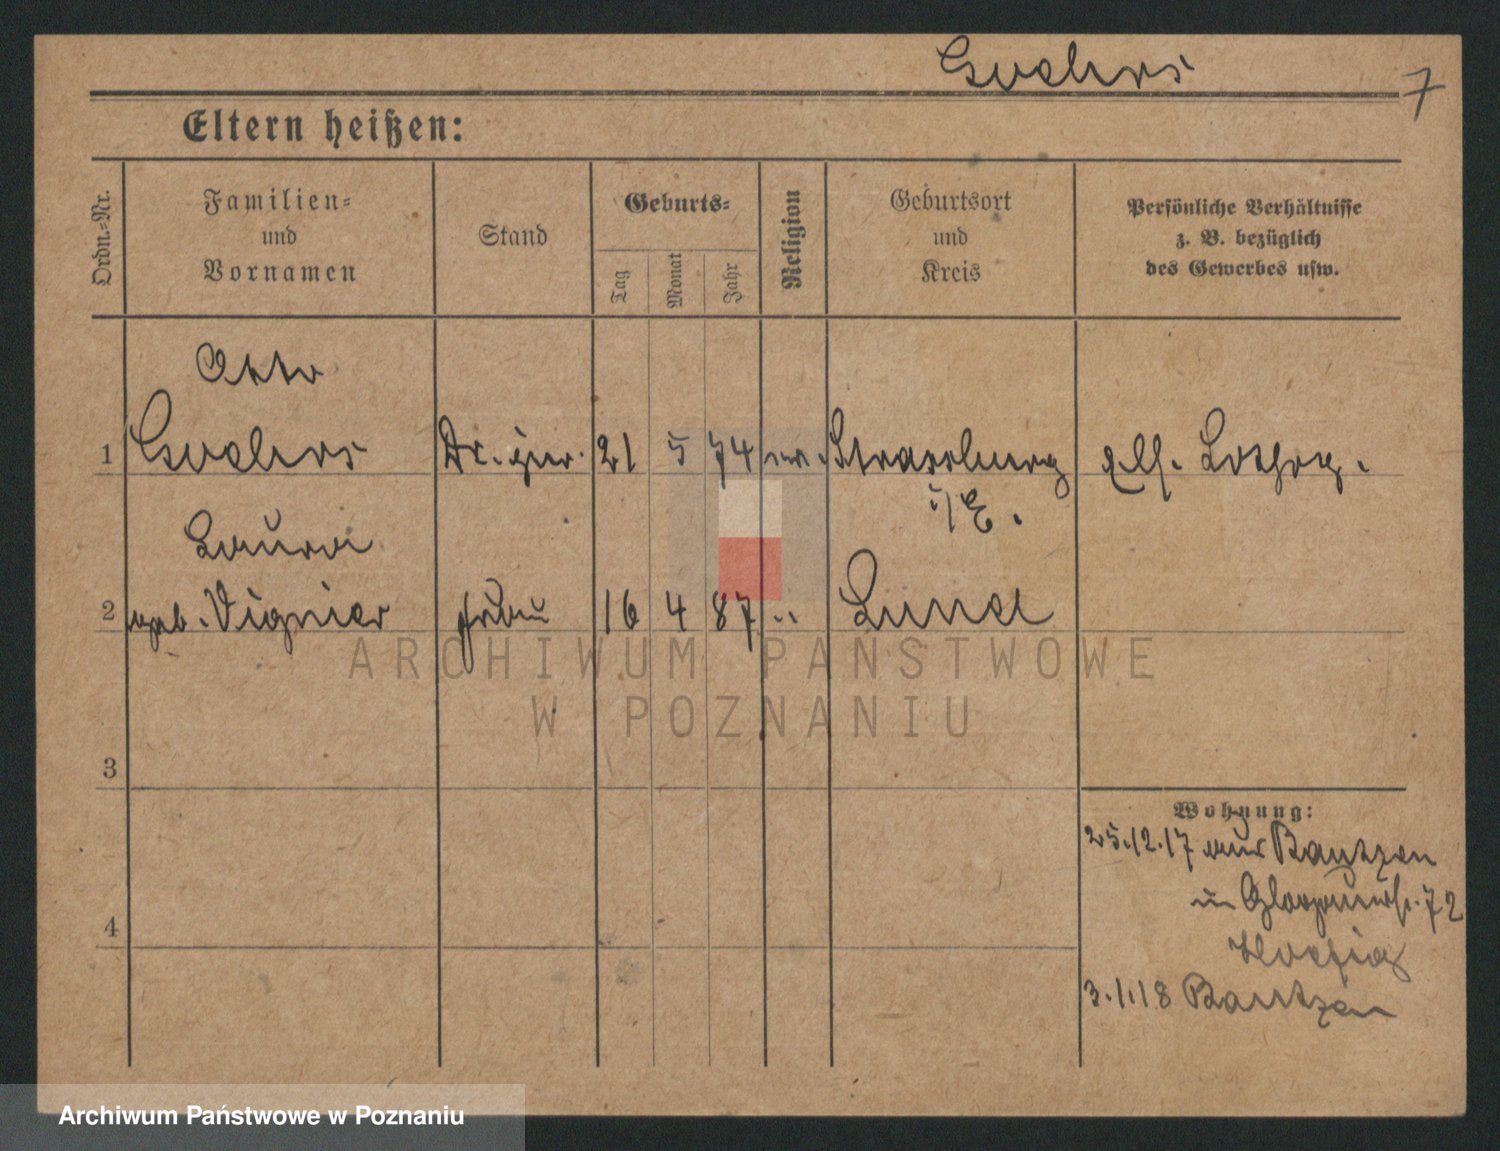 Goehrs
7
Eltern heißen:
Ordn.-Nr.
Familien-
und
Vornamen
Stand
Geburts-
Tag
Monat
Jahr
Religion
Geburtsort
und
Kreis
Persönliche Verhältnisse
z. B. bezüglich
des Gewerbes usw.
Otto
1 Goehrs Dr. jur. 21 5 74 ev. Strassburg Els. Lothrg.
i/E.
Laura
2 geb. Vignier Frau 16 4 87 " Lund
ARCHIWUM PAŃSTWOWE
W POZNANIU
3
Wohnung:
25.12.17 aus Bautzen
in 72
4
3.1.18 Bautzen
Archiwum Państwowe w Poznaniu